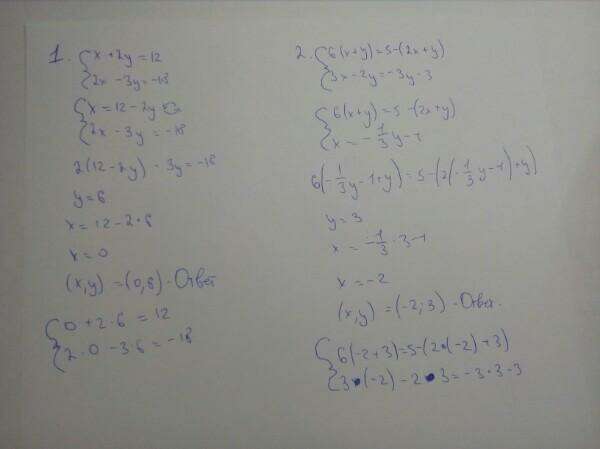 1. { x + 2y = 12
2x - 3y = -18
{ x = 12 - 2y
2x - 3y = -18
2(12 - 2y) - 3y = -18
y = 6
x = 12 - 2 · 6
x = 0
(x,y) = (0,6) - Ответ
{ 0 + 2·6 = 12
2·0 - 3·6 = -18
2. { 6(x+y) = 5-(2x+y)
3x - 2y = -3y - 3
{ 6(x+y) = 5 -(2x+y)
x = - 1/3 y - 1
6(- 1/3 y - 1 + y) = 5 - (2(- 1/3 y - 1) + y)
y = 3
x = - 1/3 · 3 - 1
x = -2
(x,y) = (-2;3) - Ответ.
{ 6(-2+3) = 5-(2·(-2)+3)
3·(-2) - 2·3 = -3·3-3